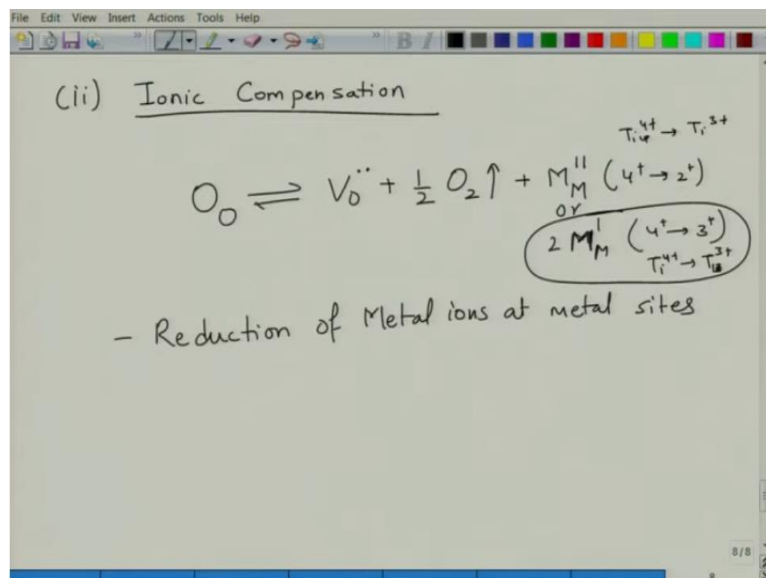 File Edit View Insert Actions Tools Help
B I
(ii) Ionic Compensation
Ti⁴⁺ → Ti³⁺
O_O ⇌ V_O¨ + 1/2 O₂↑ + M_M'' (4⁺ → 2⁺)
or
2 M_M' (4⁺ → 3⁺)
Ti⁴⁺ → T³⁺
- Reduction of Metal ions at metal sites
8/8